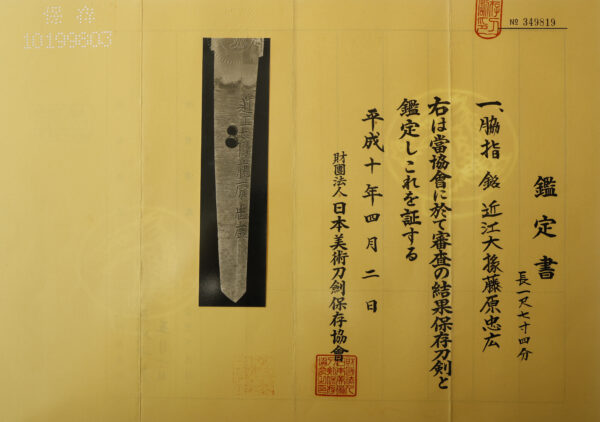 № 349819
鑑定書
一、脇指 銘 近江大掾藤原忠広
長一尺七寸四分
右は當協會に於て審査の結果保存刀剣と
鑑定しこれを証する
平成十年四月二日
財團法人 日本美術刀劍保存協會
保存
10199603
近江大掾藤原忠広